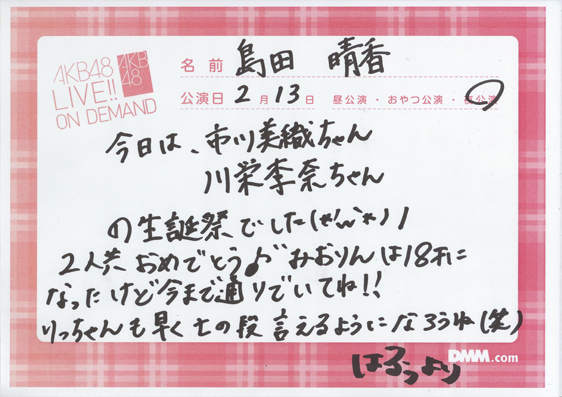 AKB48
LIVE!!
ON DEMAND
AKB
48
名前 島田 晴香
公演日 2月13日 昼公演・おやつ公演・夜公演
今日は、市川美織ちゃん
川栄李奈ちゃん
の生誕祭でした(*'ω'*)ノ
2人共おめでとう♪みおりんは18才に
なったけど今まで通りでいてね!!
りっちゃんも早く七の段言えるようになろうね(笑)
はるぅより
DMM.com